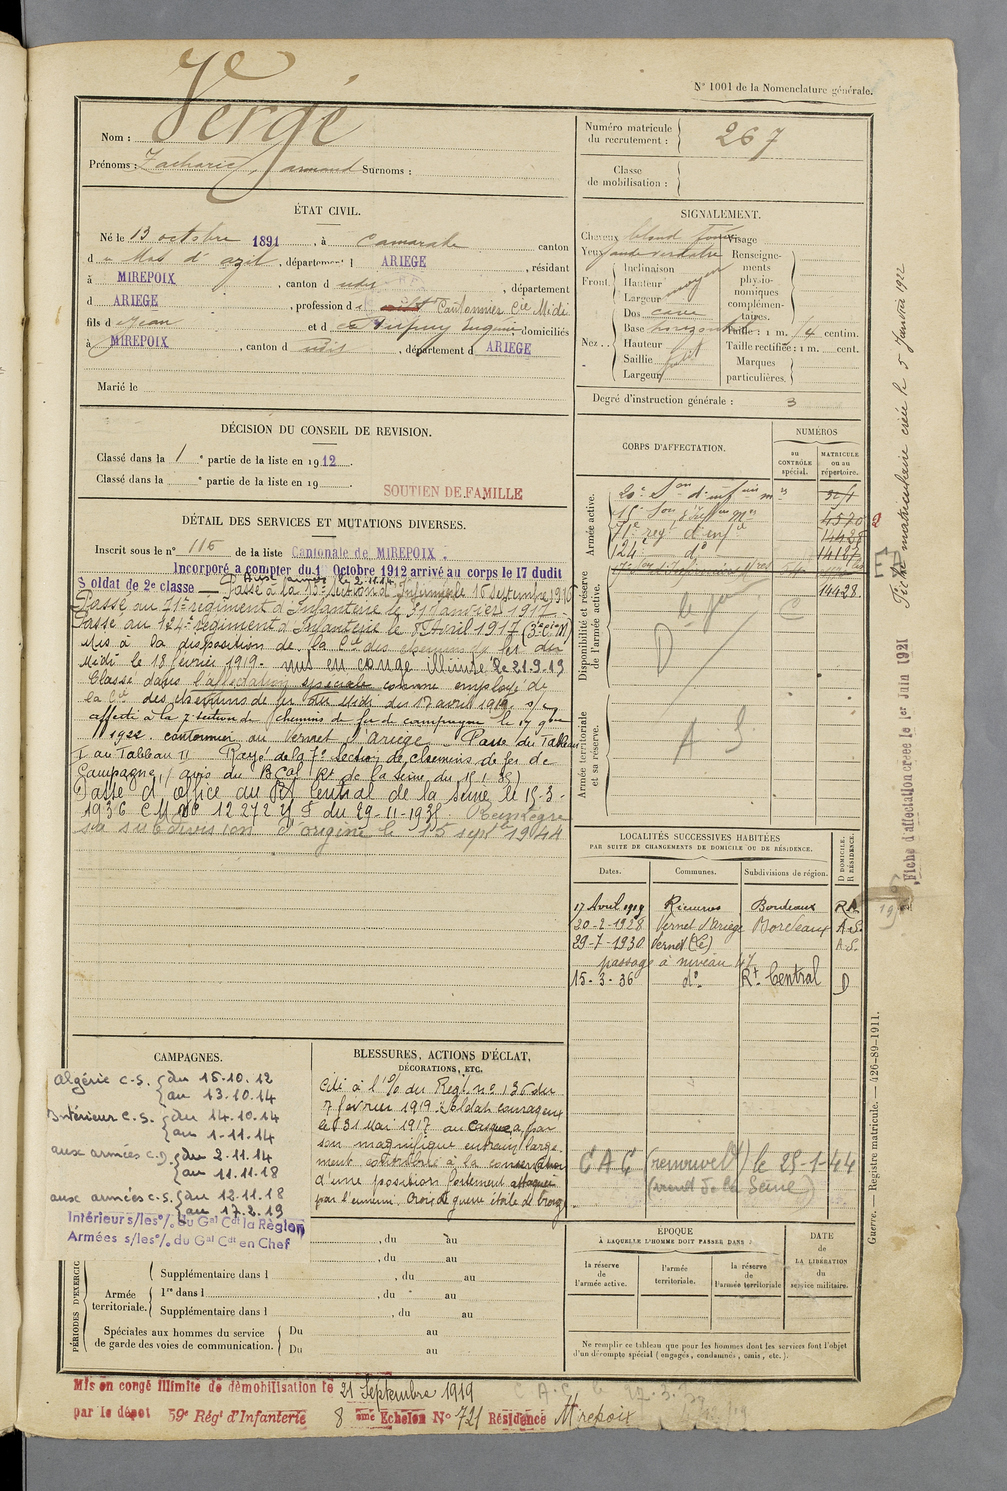 N° 1001 de la Nomenclature générale.
Nom : Vergé
Prénoms : Zacharie, Armand Surnoms :
Numéro matricule du recrutement : 267
Classe de mobilisation :
ÉTAT CIVIL.
Né le 13 octobre 1891, à Camarade canton
d u Mas d'azil, département d ARIEGE, résidant
à MIREPOIX, canton d udit, département
d ARIEGE, profession d Cantonnier Cie Midi
fils d Jean et d Dupuy Eugénie, domiciliés
à MIREPOIX, canton d udit, département d ARIEGE
Marié le
SIGNALEMENT.
Cheveux blond Visage
Yeux verdâtre
Front. Inclinaison
Hauteur moyen
Largeur
Nez. Dos cave
Base horizontal
Hauteur
Saillie
Largeur
Renseignements physionomiques complémentaires.
Taille : 1 m. 74 centim.
Taille rectifiée : 1 m. cent.
Marques particulières.
Degré d'instruction générale : 3
DÉCISION DU CONSEIL DE REVISION.
Classé dans la 1e partie de la liste en 1912.
Classé dans la e partie de la liste en 19
SOUTIEN DE FAMILLE
DÉTAIL DES SERVICES ET MUTATIONS DIVERSES.
Inscrit sous le n° 116 de la liste Cantonale de MIREPOIX.
Incorporé a compter du 1 Octobre 1912 arrivé au corps le 17 dudit
Aux armées le 2.11.14
Soldat de 2e classe — Passé à la 15e section d'Infirmiers le 16 Septembre 1916
Passé au 71e régiment d'Infanterie le 31 Janvier 1917.
Passé au 124e régiment d'Infanterie le 8 Avril 1917 (3e Cie M)
Mis à la disposition de la Cie des chemins de fer du
Midi le 18 février 1919. mis en congé illimité le 21.9.19
Classé dans l'affectation spéciale comme employé de
la Cie des chemins de fer du Midi du 17 avril 1919
affecté à la 7e section de chemins de fer de campagne le 17 9bre
1922. cantonnier au Vernet d'Ariège. Passe du Tableau
I au Tableau II Rayé de la 7e Section de chemins de fer de
Campagne (avis du BCal Rt de la Seine du 15.1.35)
Passé d'office au Rt Central de la Seine le 15-3-
1936 C M n° 12272 du 29-11-1935. Réintègre
sa subdivision d'origine le 15 septe 1944
CORPS D'AFFECTATION.
NUMÉROS
AU CONTRÔLE spécial.
MATRICULE ou au répertoire.
Armée active.
15e Son
4520
71e regt d'infie
14428
124e do
14187
14428
Disponibilité et réserve de l'armée active.
D
C
Armée territoriale et sa réserve.
A. S.
LOCALITÉS SUCCESSIVES HABITÉES
PAR SUITE DE CHANGEMENTS DE DOMICILE OU DE RÉSIDENCE.
Dates. Communes. Subdivisions de région. D DOMICILE. R RÉSIDENCE.
17 Avril 1919 Rieucros Bordeaux R.A.
20-2-1928 Vernet d'Ariège Bordeaux A.S.
29-7-1930 Vernet (Le) A.S.
passage à niveau 47
15-3-36 do Rt Central D
CAMPAGNES.
Algérie C.S. du 15.10.12
au 13.10.14
Intérieur C.S. du 14.10.14
au 1-11-14
aux armées C.D. du 2.11.14
au 11.11.18
aux armées C.S. du 12.11.18
au 17.2.19
Intérieur s/les o/. du Gal Cdt la Région
Armées s/les o/. du Gal Cdt en Chef
BLESSURES, ACTIONS D'ÉCLAT, DÉCORATIONS, ETC.
Cité à l'o/. du Regt n° 136 du
7 février 1919 : Soldat courageux
le 31 Mai 1917 au Casque a, par
son magnifique entrain, large-
ment contribué à la conservation
d'une position fortement attaquée
par l'ennemi. Croix de guerre étoile de bronze.
CAC (renouvelé) le 25-1-44
PÉRIODES D'EXERCICE
, du au
, du au
Supplémentaire dans l , du au
Armée territoriale. 1re dans l , du au
Supplémentaire dans l , du au
Spéciales aux hommes du service de garde des voies de communication. Du au
Du au
ÉPOQUE
À LAQUELLE L'HOMME DOIT PASSER DANS :
la réserve de l'armée active.
l'armée territoriale.
la réserve de l'armée territoriale
DATE de LA LIBÉRATION du service militaire.
Ne remplir ce tableau que pour les hommes dont les services font l'objet d'un décompte spécial (engagés, condamnés, omis, etc.).
Mis en congé illimité de démobilisation le 21 Septembre 1919
par le dépot 59e Régt d'Infanterie 8 eme Echelon N° 721 Résidence Mirepoix
Fiche matriculaire créée le 5 Janvier 1922
Fiche d'affectation créée le 1er Juin 1921
Guerre. — Registre matricule. — 426-89-1911.